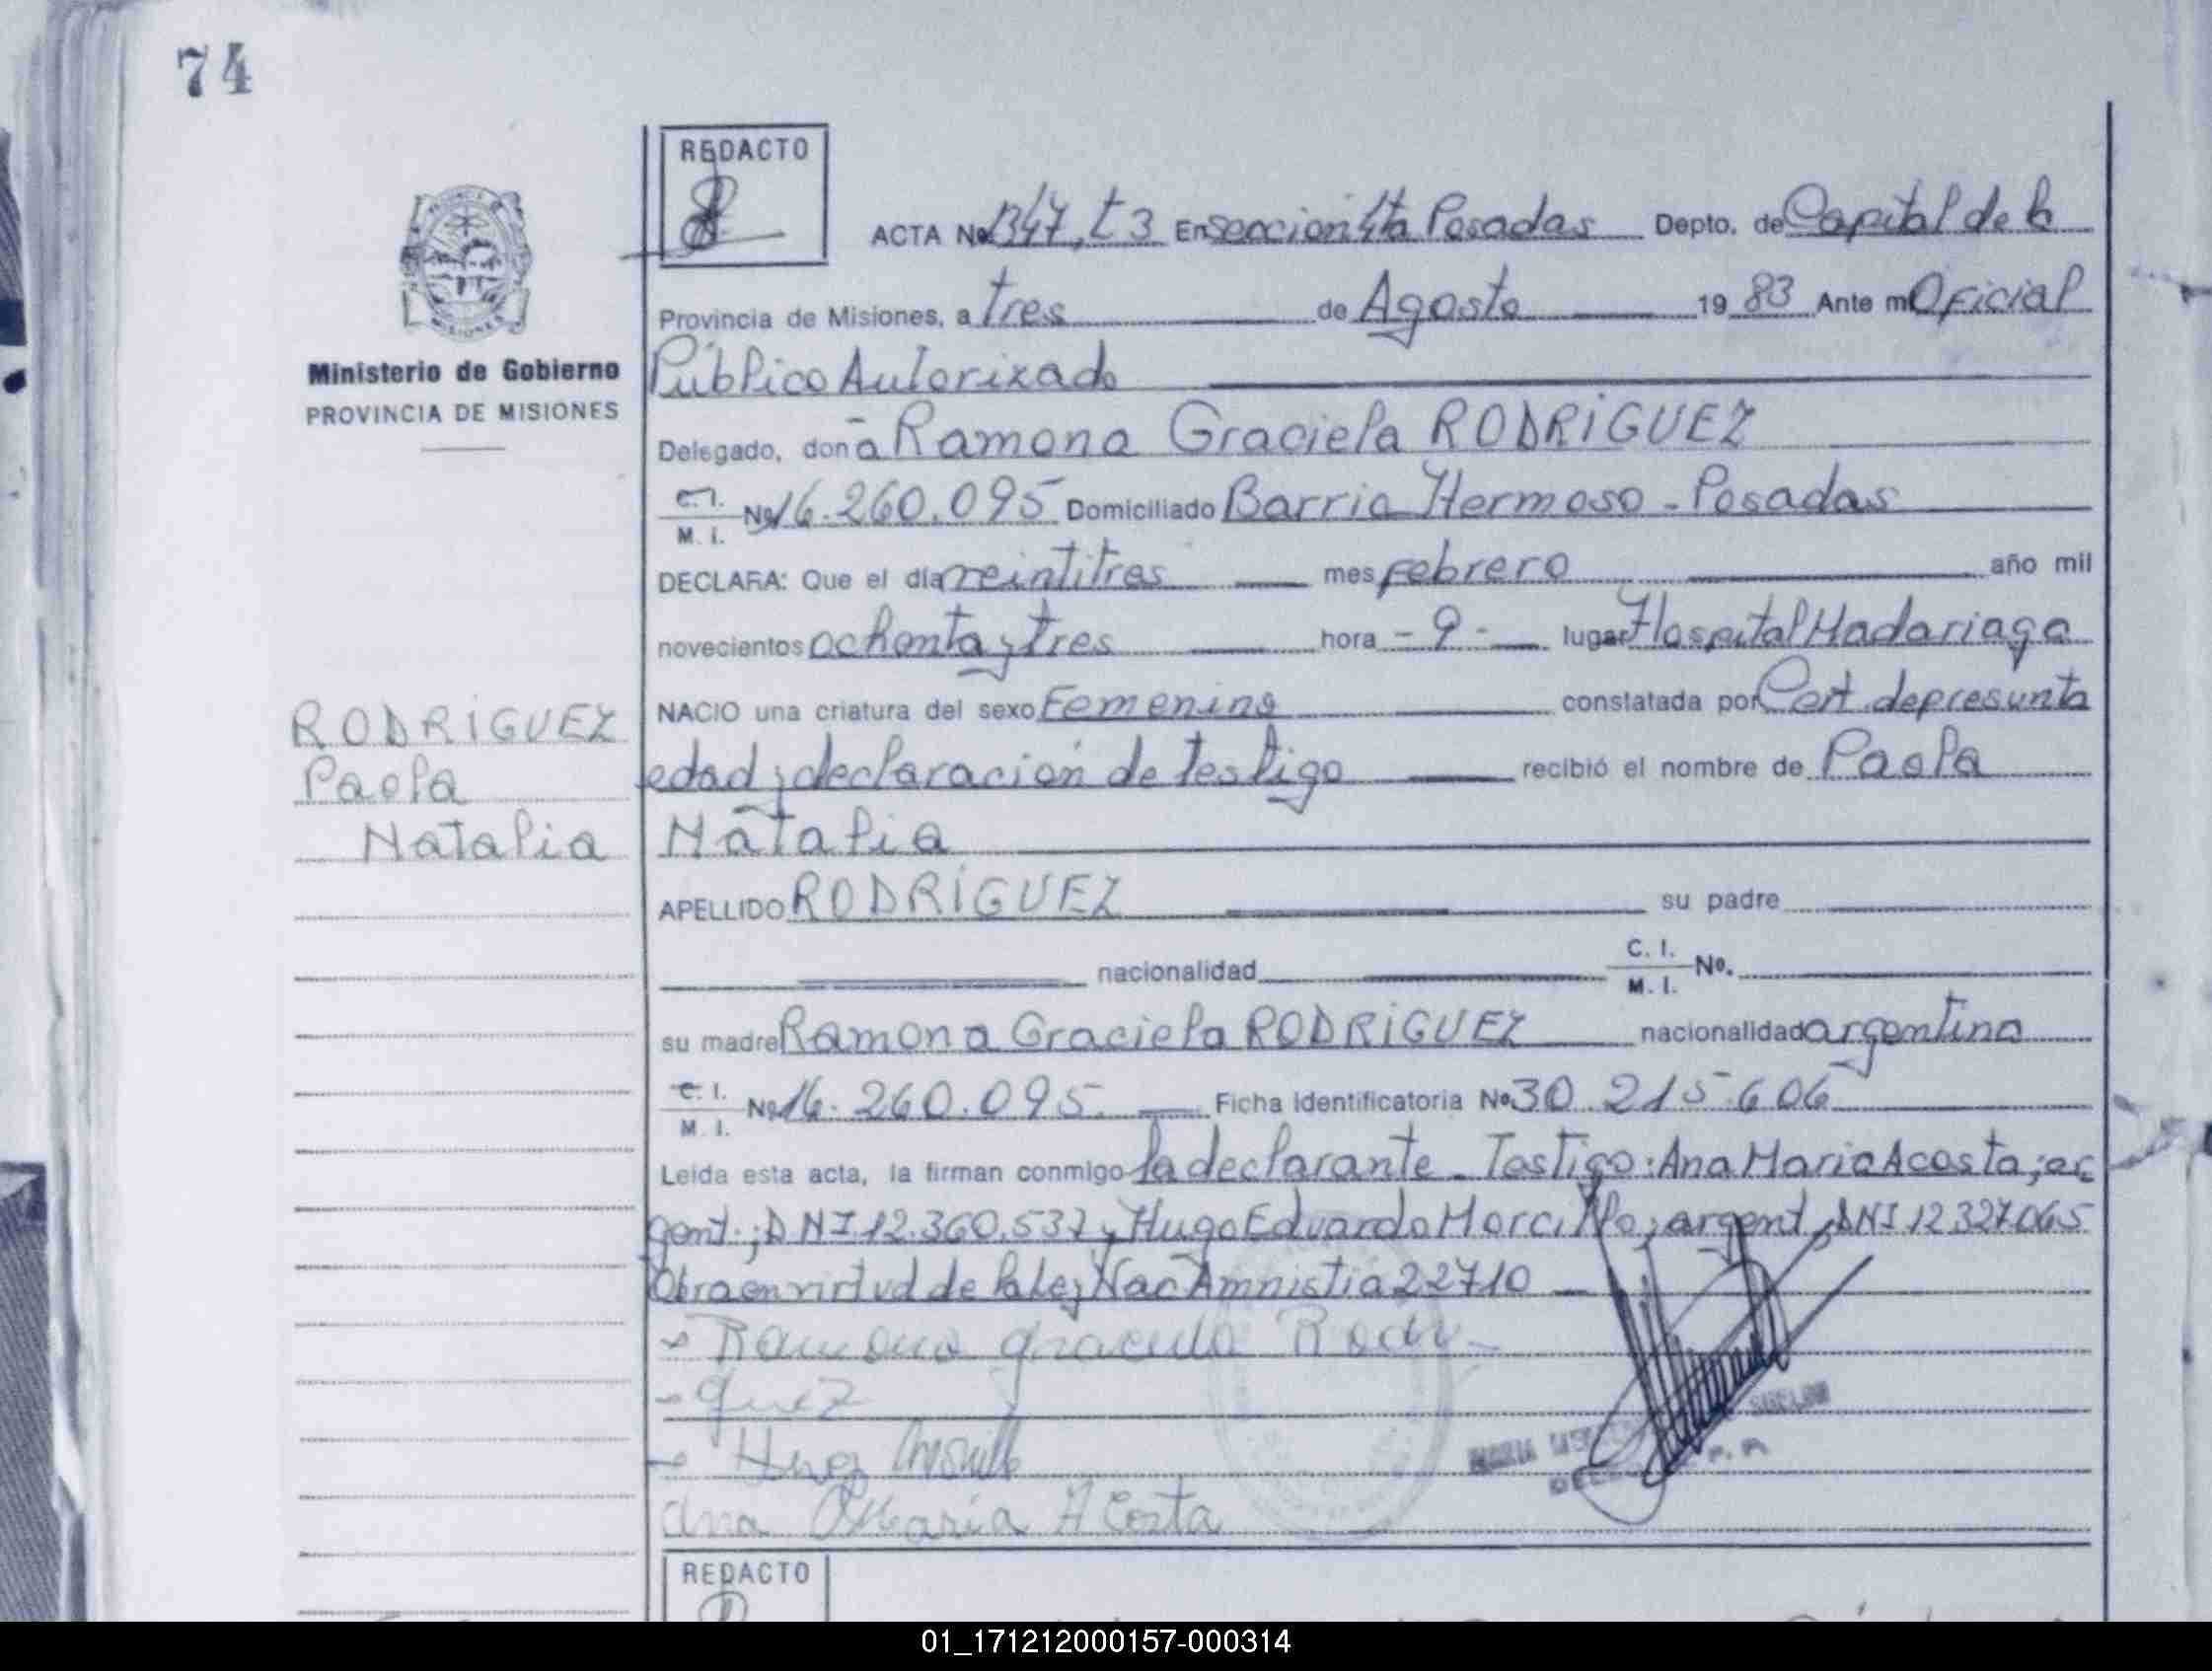 74
REDACTO
ACTA No 1347, t 3 En seccion 4ta Posadas Depto. de Capital de la
Provincia de Misiones, a tres de Agosto 19 83 Ante mi Oficial
Ministerio de Gobierno
PROVINCIA DE MISIONES
Público Autorizado
Delegado, don a Ramona Graciela RODRIGUEZ
C. I. M. I. No 16.260.095 Domiciliado Barrio Hermoso - Posadas
DECLARA: Que el día veintitres mes febrero año mil
novecientos ochenta y tres hora - 9 - lugar Hospital Madariaga
NACIO una criatura del sexo Femenino constatada por Cert. de presunta
RODRIGUEZ
Paola
Natalia
edad y declaración de testigo recibió el nombre de Paola
Natalia
APELLIDO RODRIGUEZ su padre
nacionalidad C. I. M. I. No.
su madre Ramona Graciela RODRIGUEZ nacionalidad argentina
C. I. M. I. No 16.260.095. Ficha Identificatoria No 30.215.606
Leida esta acta, la firman conmigo la declarante - Testigo: Ana Maria Acosta; ar
gent.; DNI 12.360.537 y Hugo Eduardo Morcillo; argent, DNI 12 327.065
Obra en virtud de la ley Nac Amnistia 22710
Ramona Graciela Rodri
guez
Hugo
Ana Maria Acosta
REDACTO
01_171212000157-000314